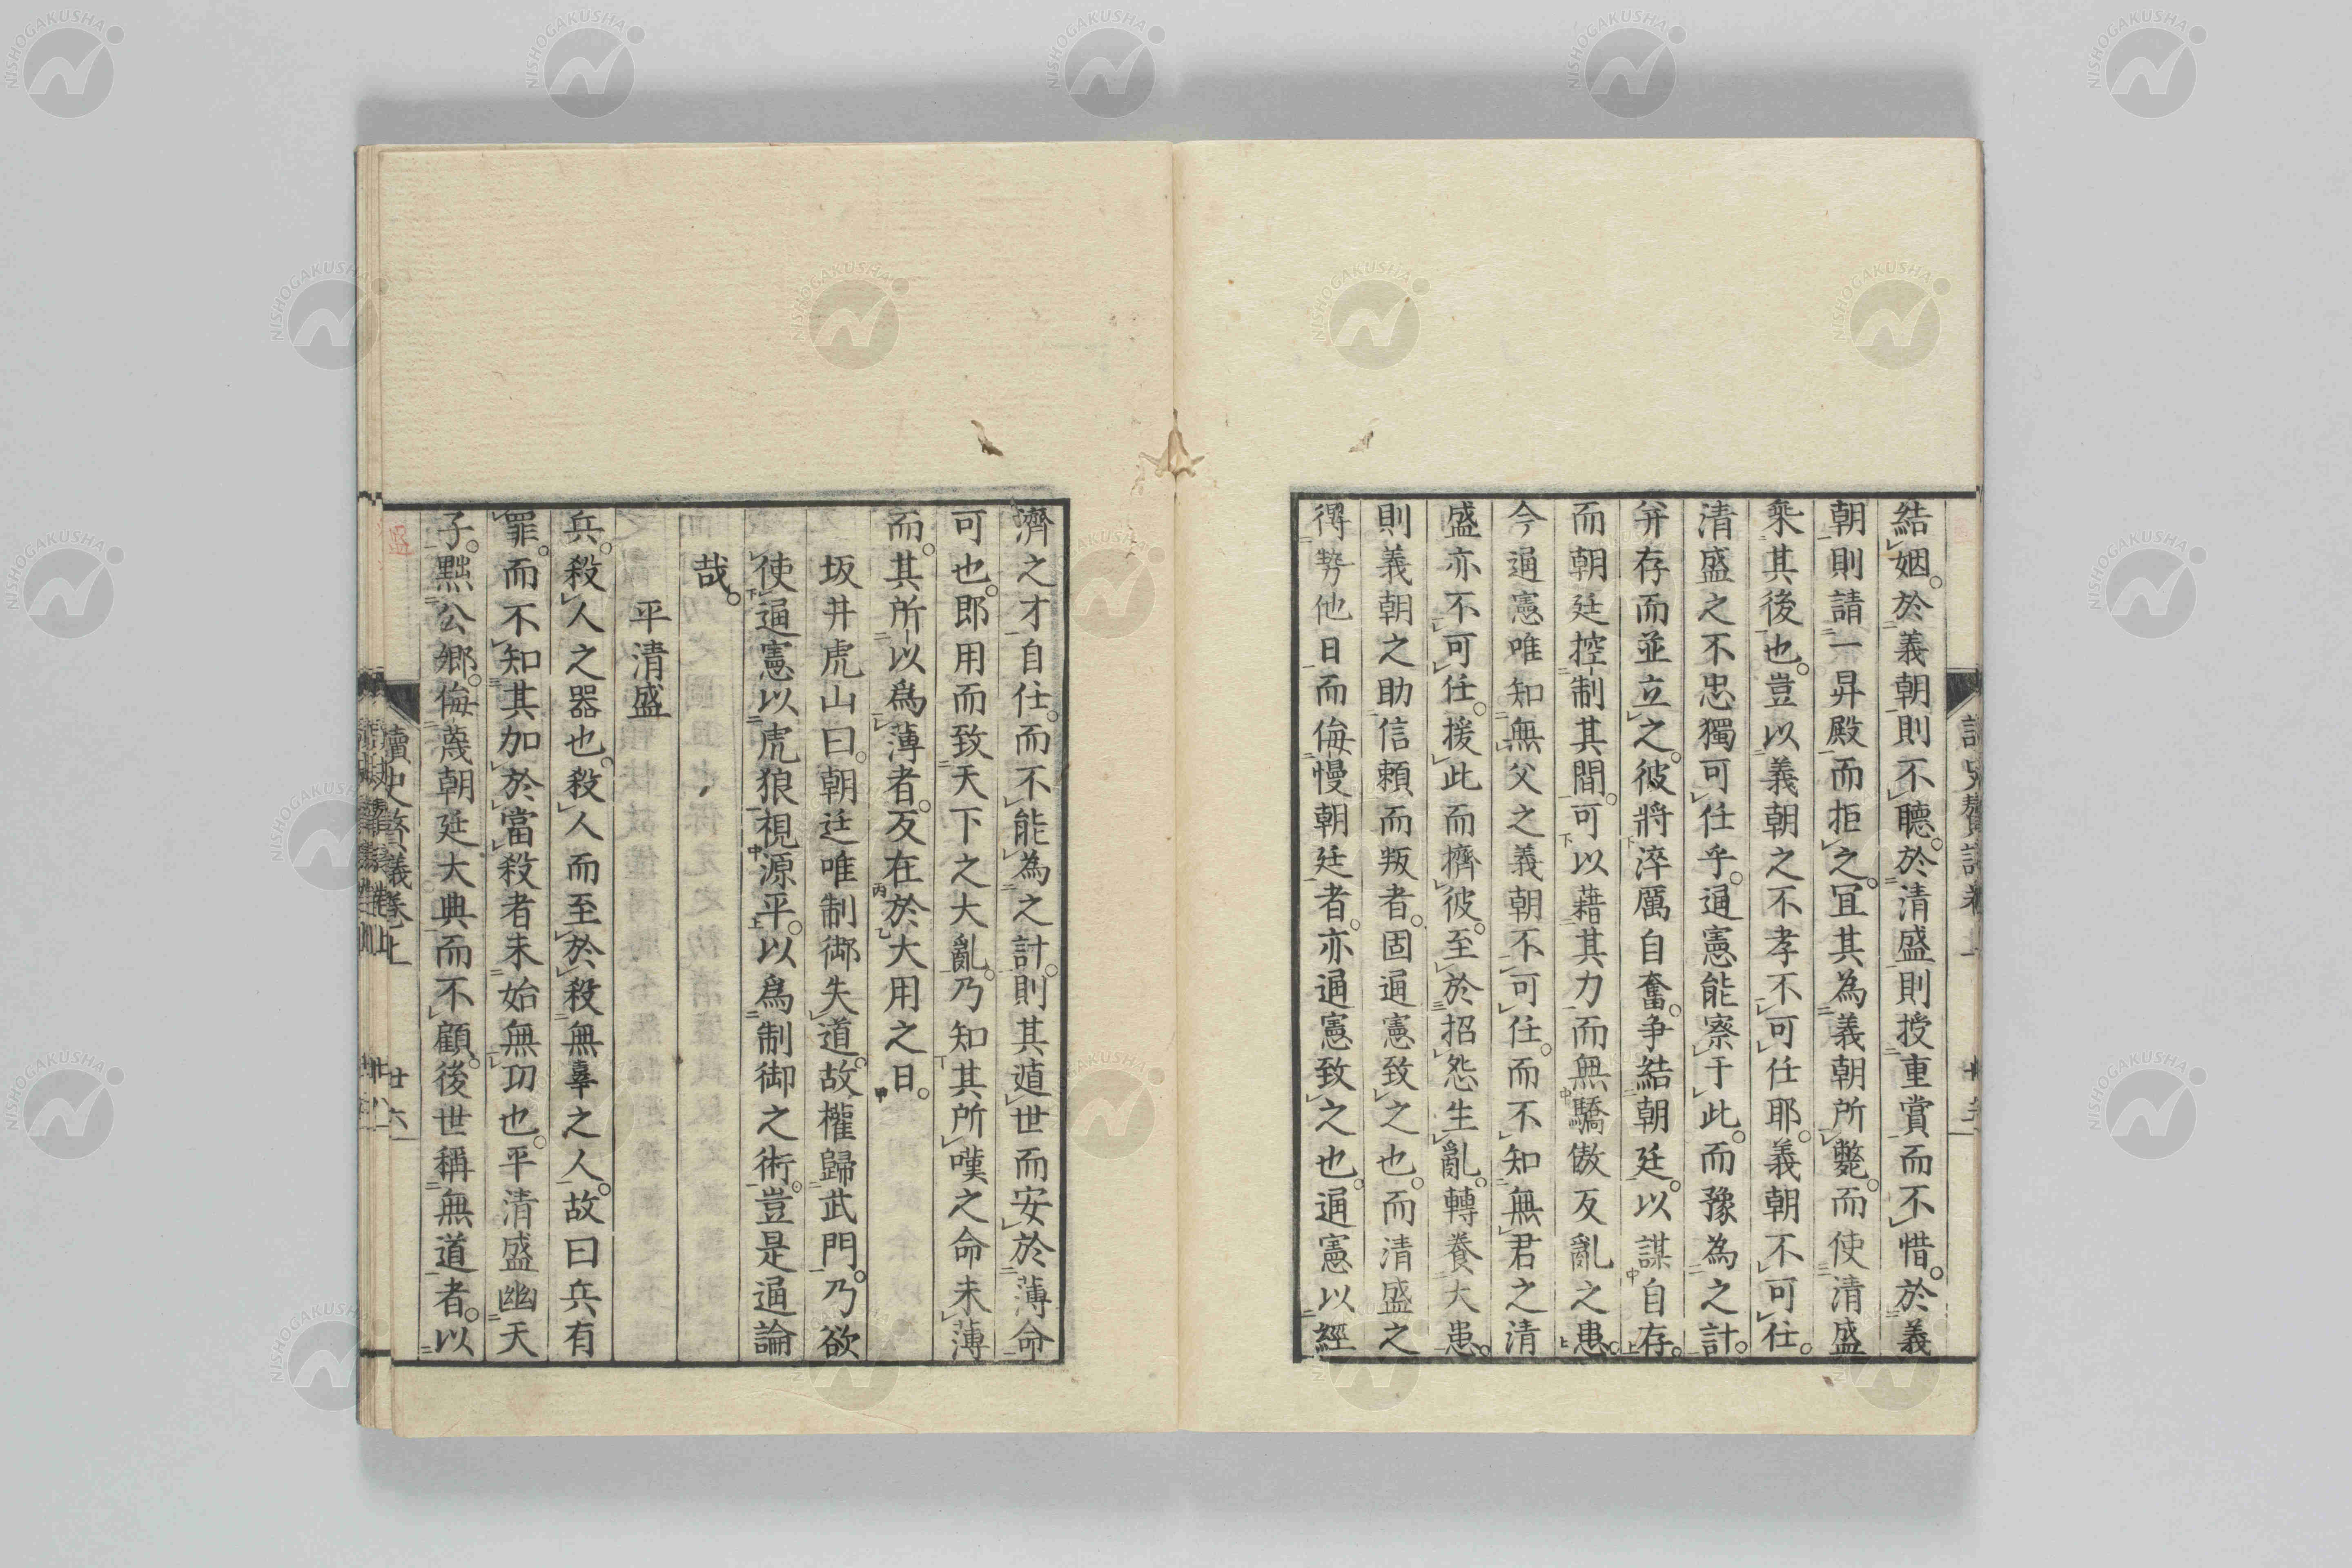 結姻。於義朝則不聽。於清盛則授重賞而不惜。於義
朝則請一昇殿而拒之。冝其為義朝所斃。而使清盛
乗其後也。豈以義朝之不孝不可任耶。義朝不可任。
清盛之不忠獨可任乎。通憲能察于此。而豫為之計。
并存而並立之。彼將淬厲自奮。争結朝廷。以謀自存。
而朝廷控制其間。可以藉其力而無驕傲反亂之患。
今通憲唯知無父之義朝不可任。而不知無君之清
盛亦不可任。援此而擠彼。至於招怨生亂。轉養大患。
則義朝之助信頼而叛者。固通憲致之也。而清盛之
得勢他日而侮慢朝廷者。亦通憲致之也。通憲以經
濟之才自任。而不能為之計。則其遁世而安於薄命
可也。郎用而致天下之大亂。乃知其所嘆之命未薄
而。其所以為薄者。反在於大用之日。
坂井虎山曰。朝廷唯制御失道。故權歸武門。乃欲
使通憲以虎狼視源平。以為制御之術。豈是通論
哉。
平清盛
兵。殺人之器也。殺人而至於殺無辜之人。故曰兵有
罪。而不知其加於當殺者未始無功也。平清盛幽天
子。黜公卿。侮蔑朝廷大典而不顧。後世稱無道者。以
讀史贅議卷上
廿六
NISHOGAKUSHA